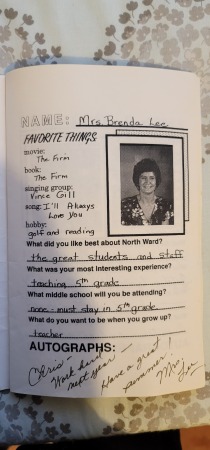 NAME: Mrs. Brenda Lee
FAVORITE THINGS
movie:
The Firm
book:
The Firm
singing group:
Vince Gill
song: I'll Always
Love you
hobby:
golf and reading
What did you like best about North Ward?
the great students and staff
What was your most interesting experience?
teaching 5th grade
What middle school will you be attending?
none - must stay in 5th grade
What do you want to be when you grow up?
teacher
AUTOGRAPHS:
Chris -
Work hard
next year -
Have a great
summer!
Mrs. Lee